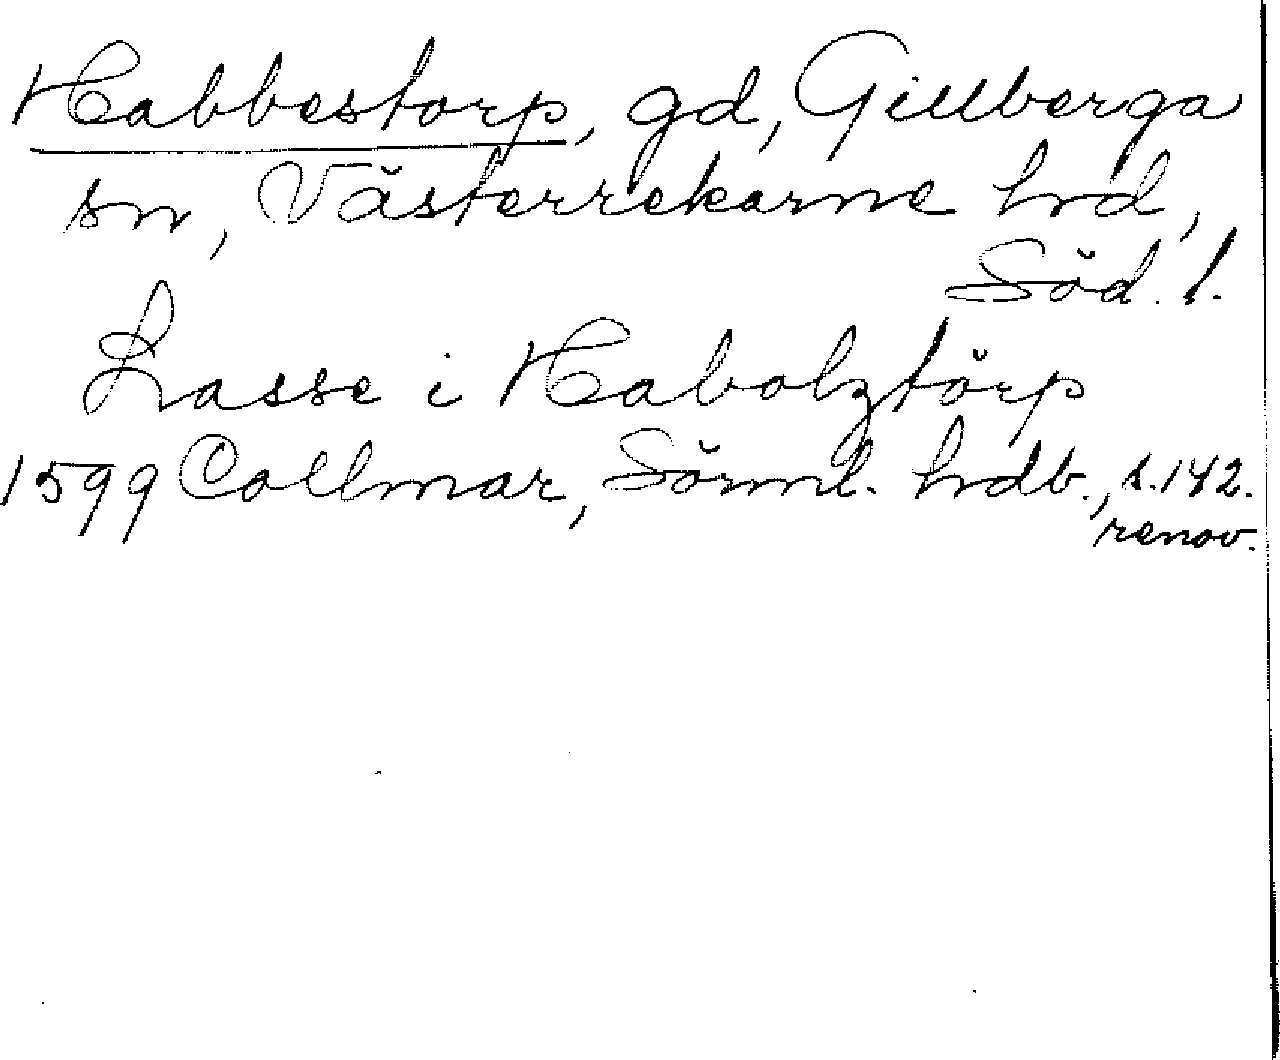 Habbestorp, gd, Gillberga
sn, Västerrekarne hrd,
Söd. l.
Lasse i Habolztörp
1599 Collmar, Sörml. hrdb., s. 142.
renov.